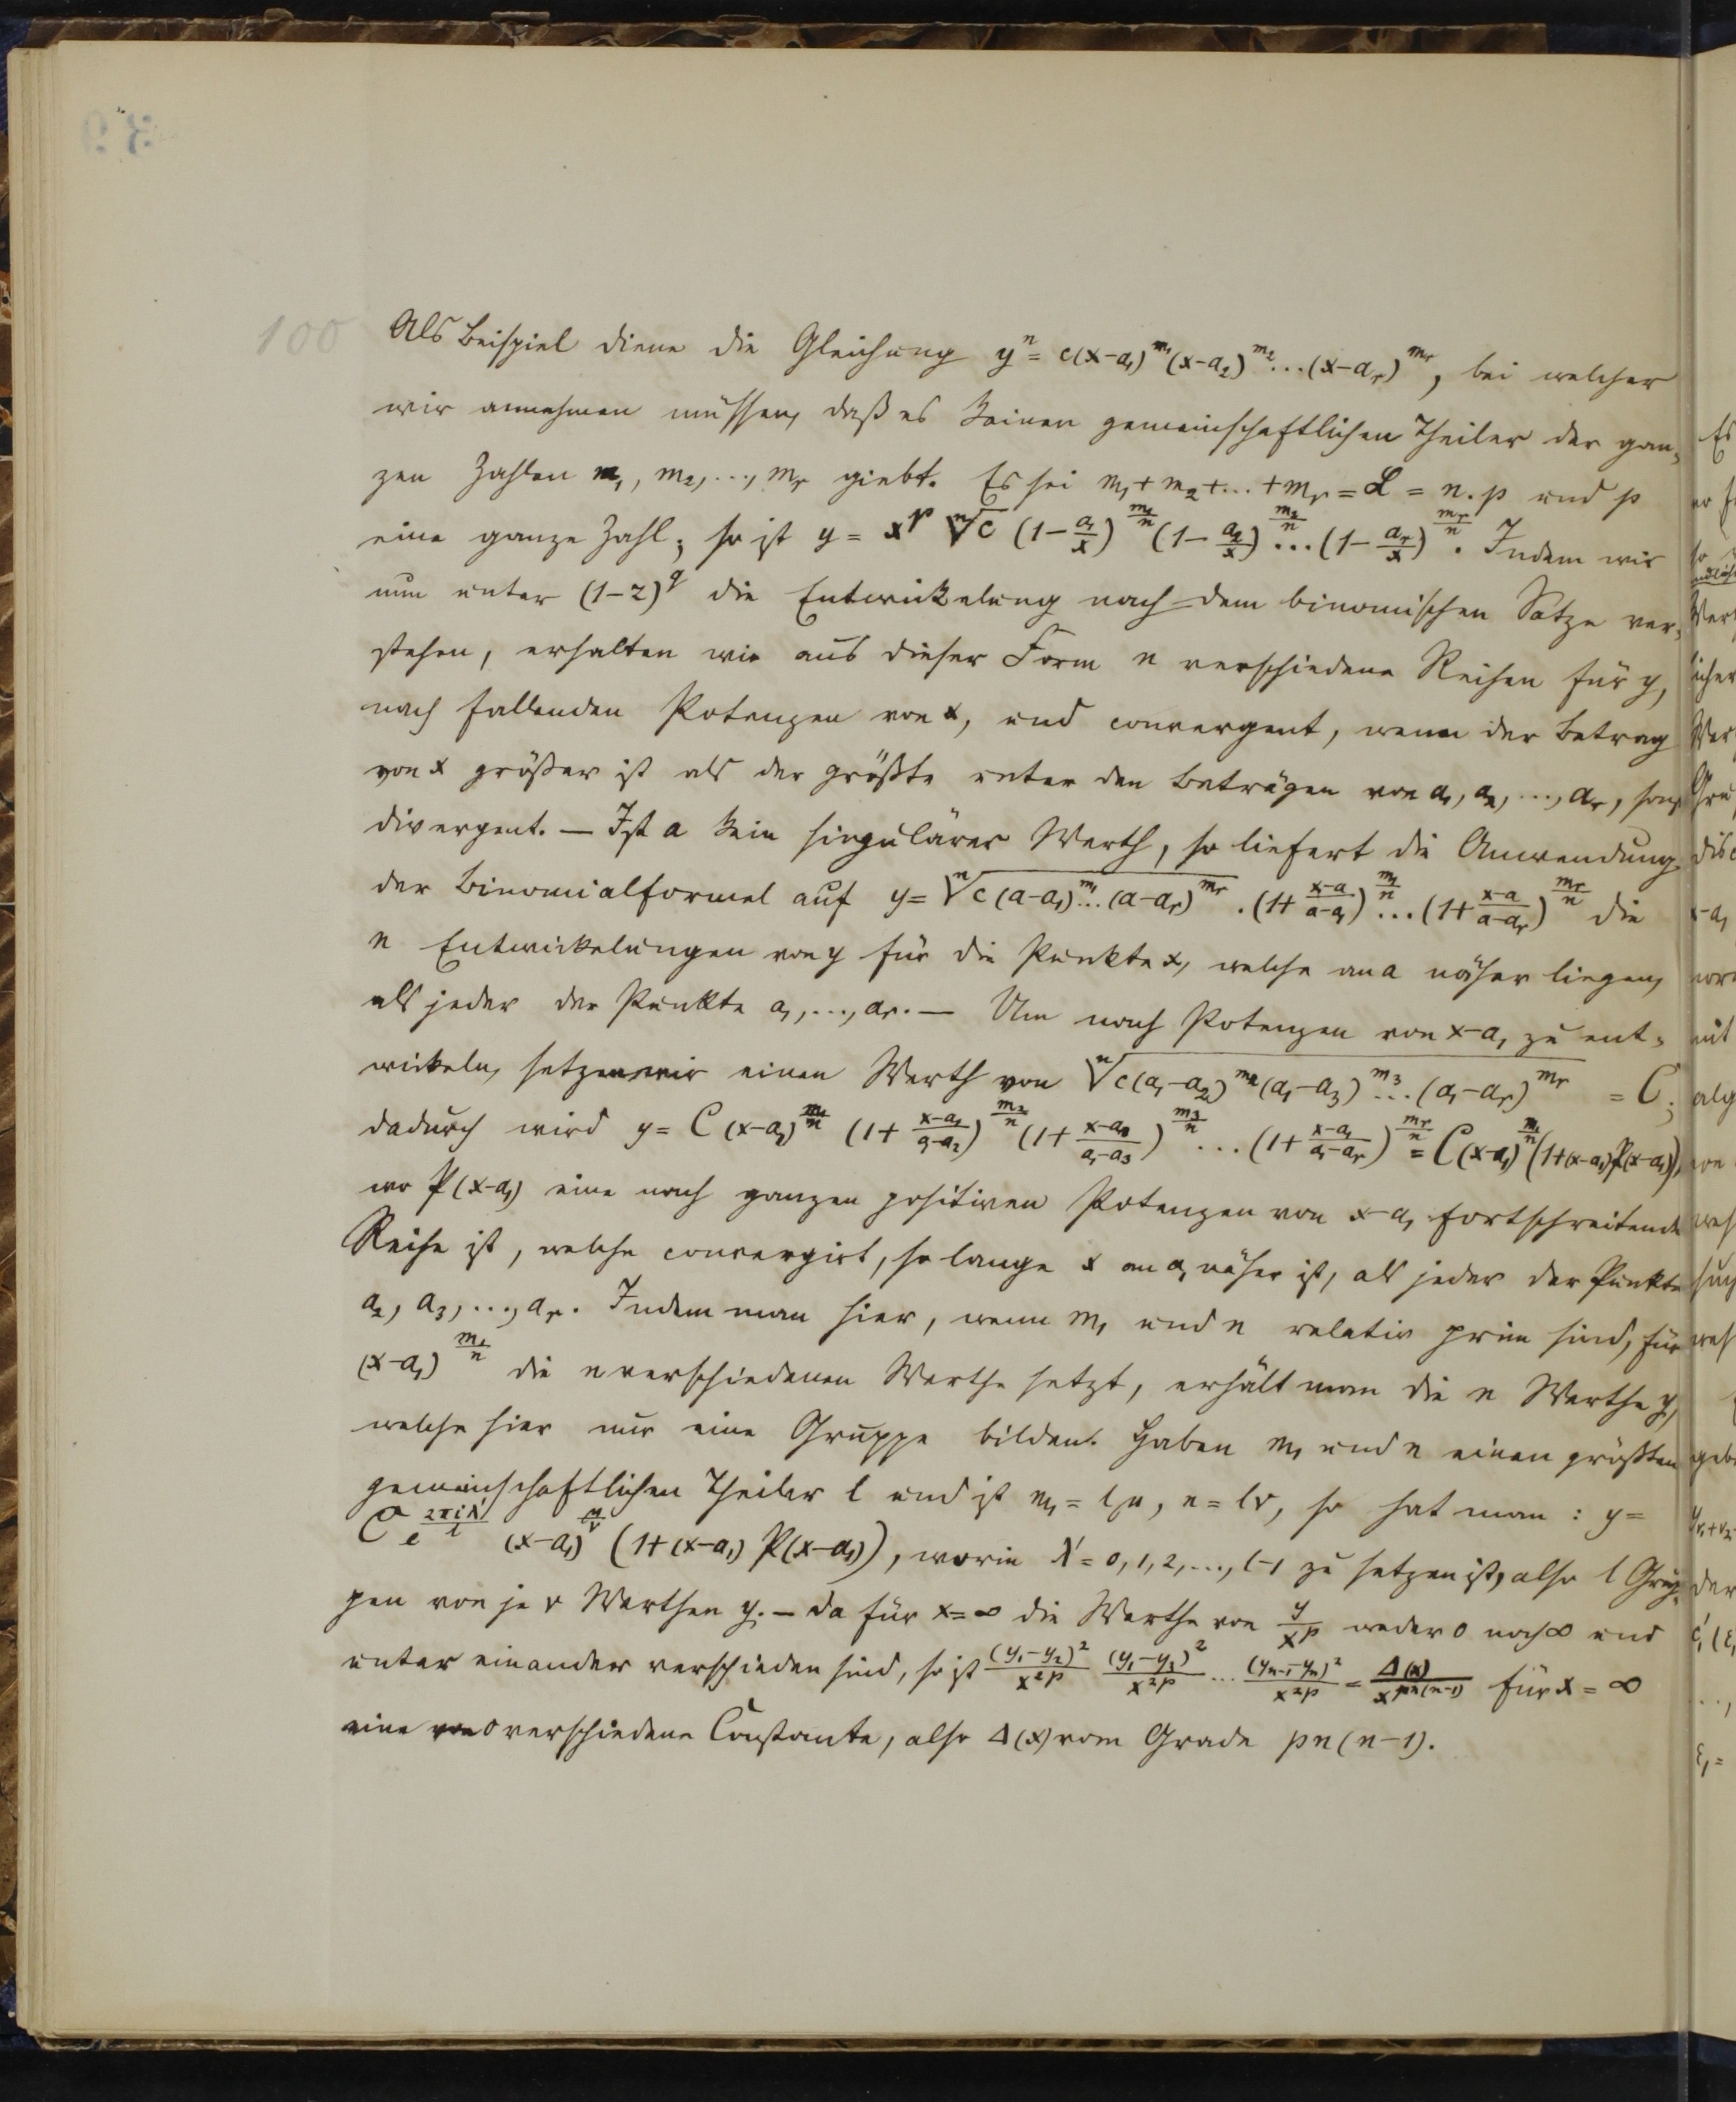 100
Als Beispiel diene die Gleichung yⁿ = c(x-a₁)^{m₁}(x-a₂)^{m₂}...(x-a_r)^{m_r}, bei welcher
wir annehmen müssen, daß es keinen gemeinschaftlichen Theiler der gan-
zen Zahlen m₁, m₂, ..., m_r giebt. Es sei m₁+m₂+...+m_r = L = n.p und p
eine ganze Zahl; so ist y = x^p \sqrt[n]{c} (1-\frac{a₁}{x})^{\frac{m₁}{n}} (1-\frac{a₂}{x})^{\frac{m₂}{n}} ... (1-\frac{a_r}{x})^{\frac{m_r}{n}}. Indem wir
nun unter (1-z)^q die Entwickelung nach dem binomischen Satze ver-
stehen, erhalten wir aus dieser Form n verschiedene Reihen für y,
nach fallenden Potenzen von x, und convergent, wenn der Betrag
von x größer ist als der größte unter den Beträgen von a₁, a₂, ..., a_r, sonst
divergent. — Ist a kein singulärer Werth, so liefert die Anwendung
der Binomialformel auf y = \sqrt[n]{c(a-a₁)^{m₁}...(a-a_r)^{m_r}} . (1+\frac{x-a}{a-a₁})^{\frac{m₁}{n}} ... (1+\frac{x-a}{a-a_r})^{\frac{m_r}{n}} die
n Entwickelungen von y für die Punkte x, welche an a näher liegen,
als jeder der Punkte a₁, ..., a_r. — Um nach Potenzen von x-a₁ zu ent-
wickeln, setzen wir einen Werth von \sqrt[n]{c(a₁-a₂)^{m₂}(a₁-a₃)^{m₃}...(a₁-a_r)^{m_r}} = C;
dadurch wird y = C (x-a₁)^{\frac{m₁}{n}} (1+\frac{x-a₁}{a₁-a₂})^{\frac{m₂}{n}} (1+\frac{x-a₁}{a₁-a₃})^{\frac{m₃}{n}} ... (1+\frac{x-a₁}{a₁-a_r})^{\frac{m_r}{n}} = C(x-a₁)^{\frac{m₁}{n}} (1+(x-a₁)P(x-a₁)),
wo P(x-a₁) eine nach ganzen positiven Potenzen von x-a₁ fortschreitende
Reihe ist, welche convergirt, so lange x an a₁ näher ist, als jeder der Punkte
a₂, a₃, ..., a_r. Indem man hier, wenn m₁ und n relativ prim sind, für
(x-a₁)^{\frac{m₁}{n}} die n verschiedenen Werthe setzt, erhält man die n Werthe y,
welche hier nur eine Gruppe bilden. Haben m₁ und n einen größten
gemeinschaftlichen Theiler l und ist m₁ = lμ, n = lν, so hat man: y =
C e^{\frac{2πiλ'}{l}} (x-a₁)^{\frac{μ}{ν}} (1+(x-a₁) P(x-a₁)), worin λ' = 0, 1, 2, ..., l-1 zu setzen ist, also l Grup-
pen von je ν Werthen y. — Da für x=∞ die Werthe von \frac{y}{x^p} weder 0 noch ∞ und
unter einander verschieden sind, so ist \frac{(y₁-y₂)²}{x^{2p}} \frac{(y₁-y₃)²}{x^{2p}} ... \frac{(y_{n-1}-y_n)²}{x^{2p}} = \frac{Δ(x)}{x^{pn(n-1)}} für x = ∞
eine von 0 verschiedene Constante, also Δ(x) vom Grade pn(n-1).